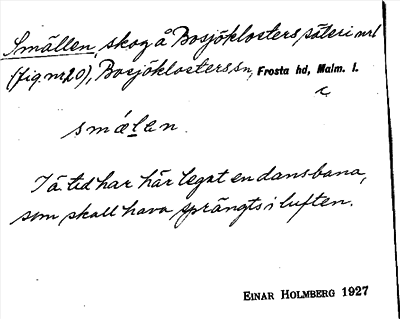 Smällen, skog å Bosjöklosters säteri nr 1
(fig. nr 20), Bosjöklosters sn, Frosta hd, Malm. l.
smælen.
I ä. tid har här legat en dansbana,
som skall hava sprängts i luften.
EINAR HOLMBERG 1927